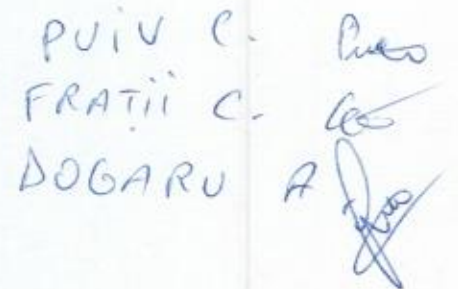 PUIU C.
FRAȚII C.
DOGARU A